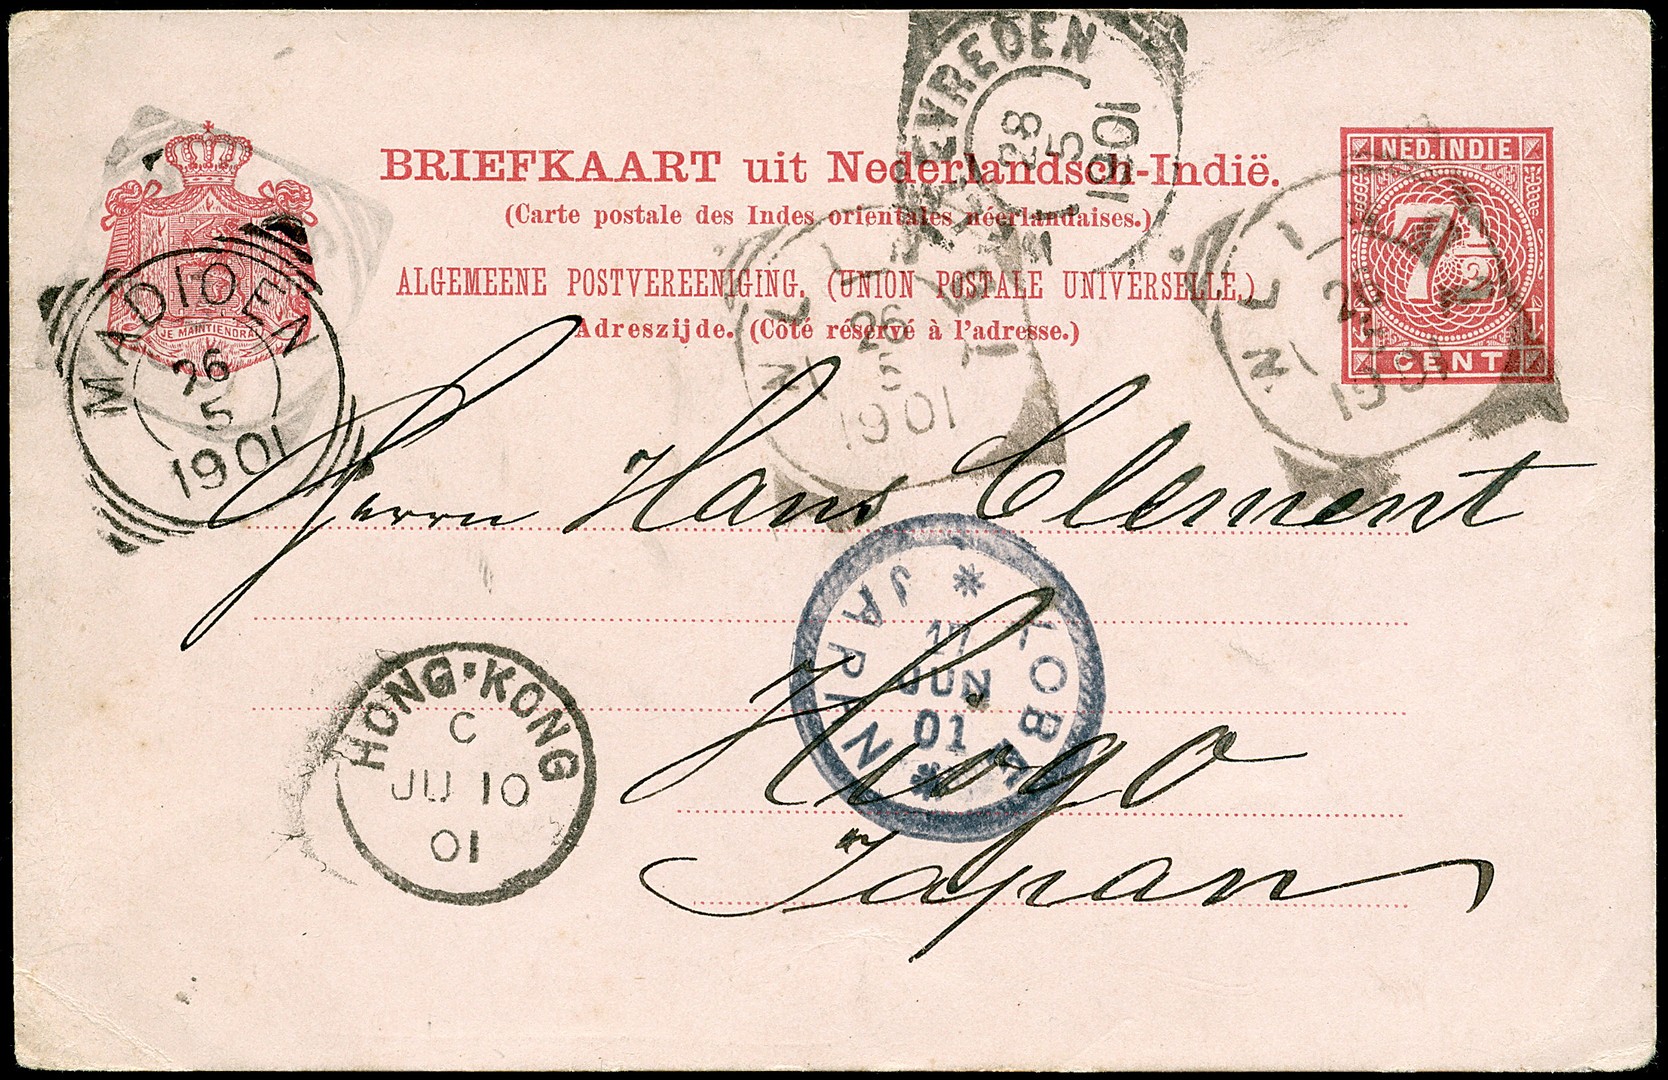 BRIEFKAART uit Nederlandsch-Indië.
(Carte postale des Indes orientales néerlandaises.)
ALGEMEENE POSTVEREENIGING. (UNION POSTALE UNIVERSELLE.)
Adreszijde. (Côté réservé à l'adresse.)
JE MAINTIENDRAI
NED. INDIE
7 1/2
CENT
EVREDEN
28
5
1901
MADIOEN
26
5
1901
NGAWI
26
5
1901
1901
Herrn Hans Clement
Hiogo
Japan
HONG-KONG
C
JU 10
01
KOBE
17
JUN
01
JAPAN